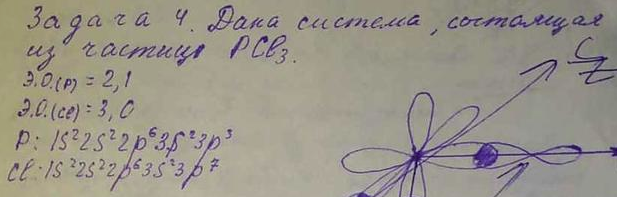 Задача 4. Дана система, состоящая
из частицы PCl₃.
Э.О.(P) = 2,1
Э.О.(Cl) = 3,0
P: 1S²2S²2p⁶3S²3p³
Cl: 1S²2S²2p⁶3S²3p⁷
Z